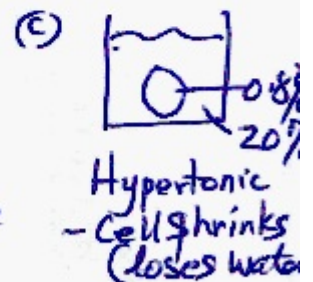 (c)
0.8%
20%
Hypertonic
- Cell shrinks
(loses water